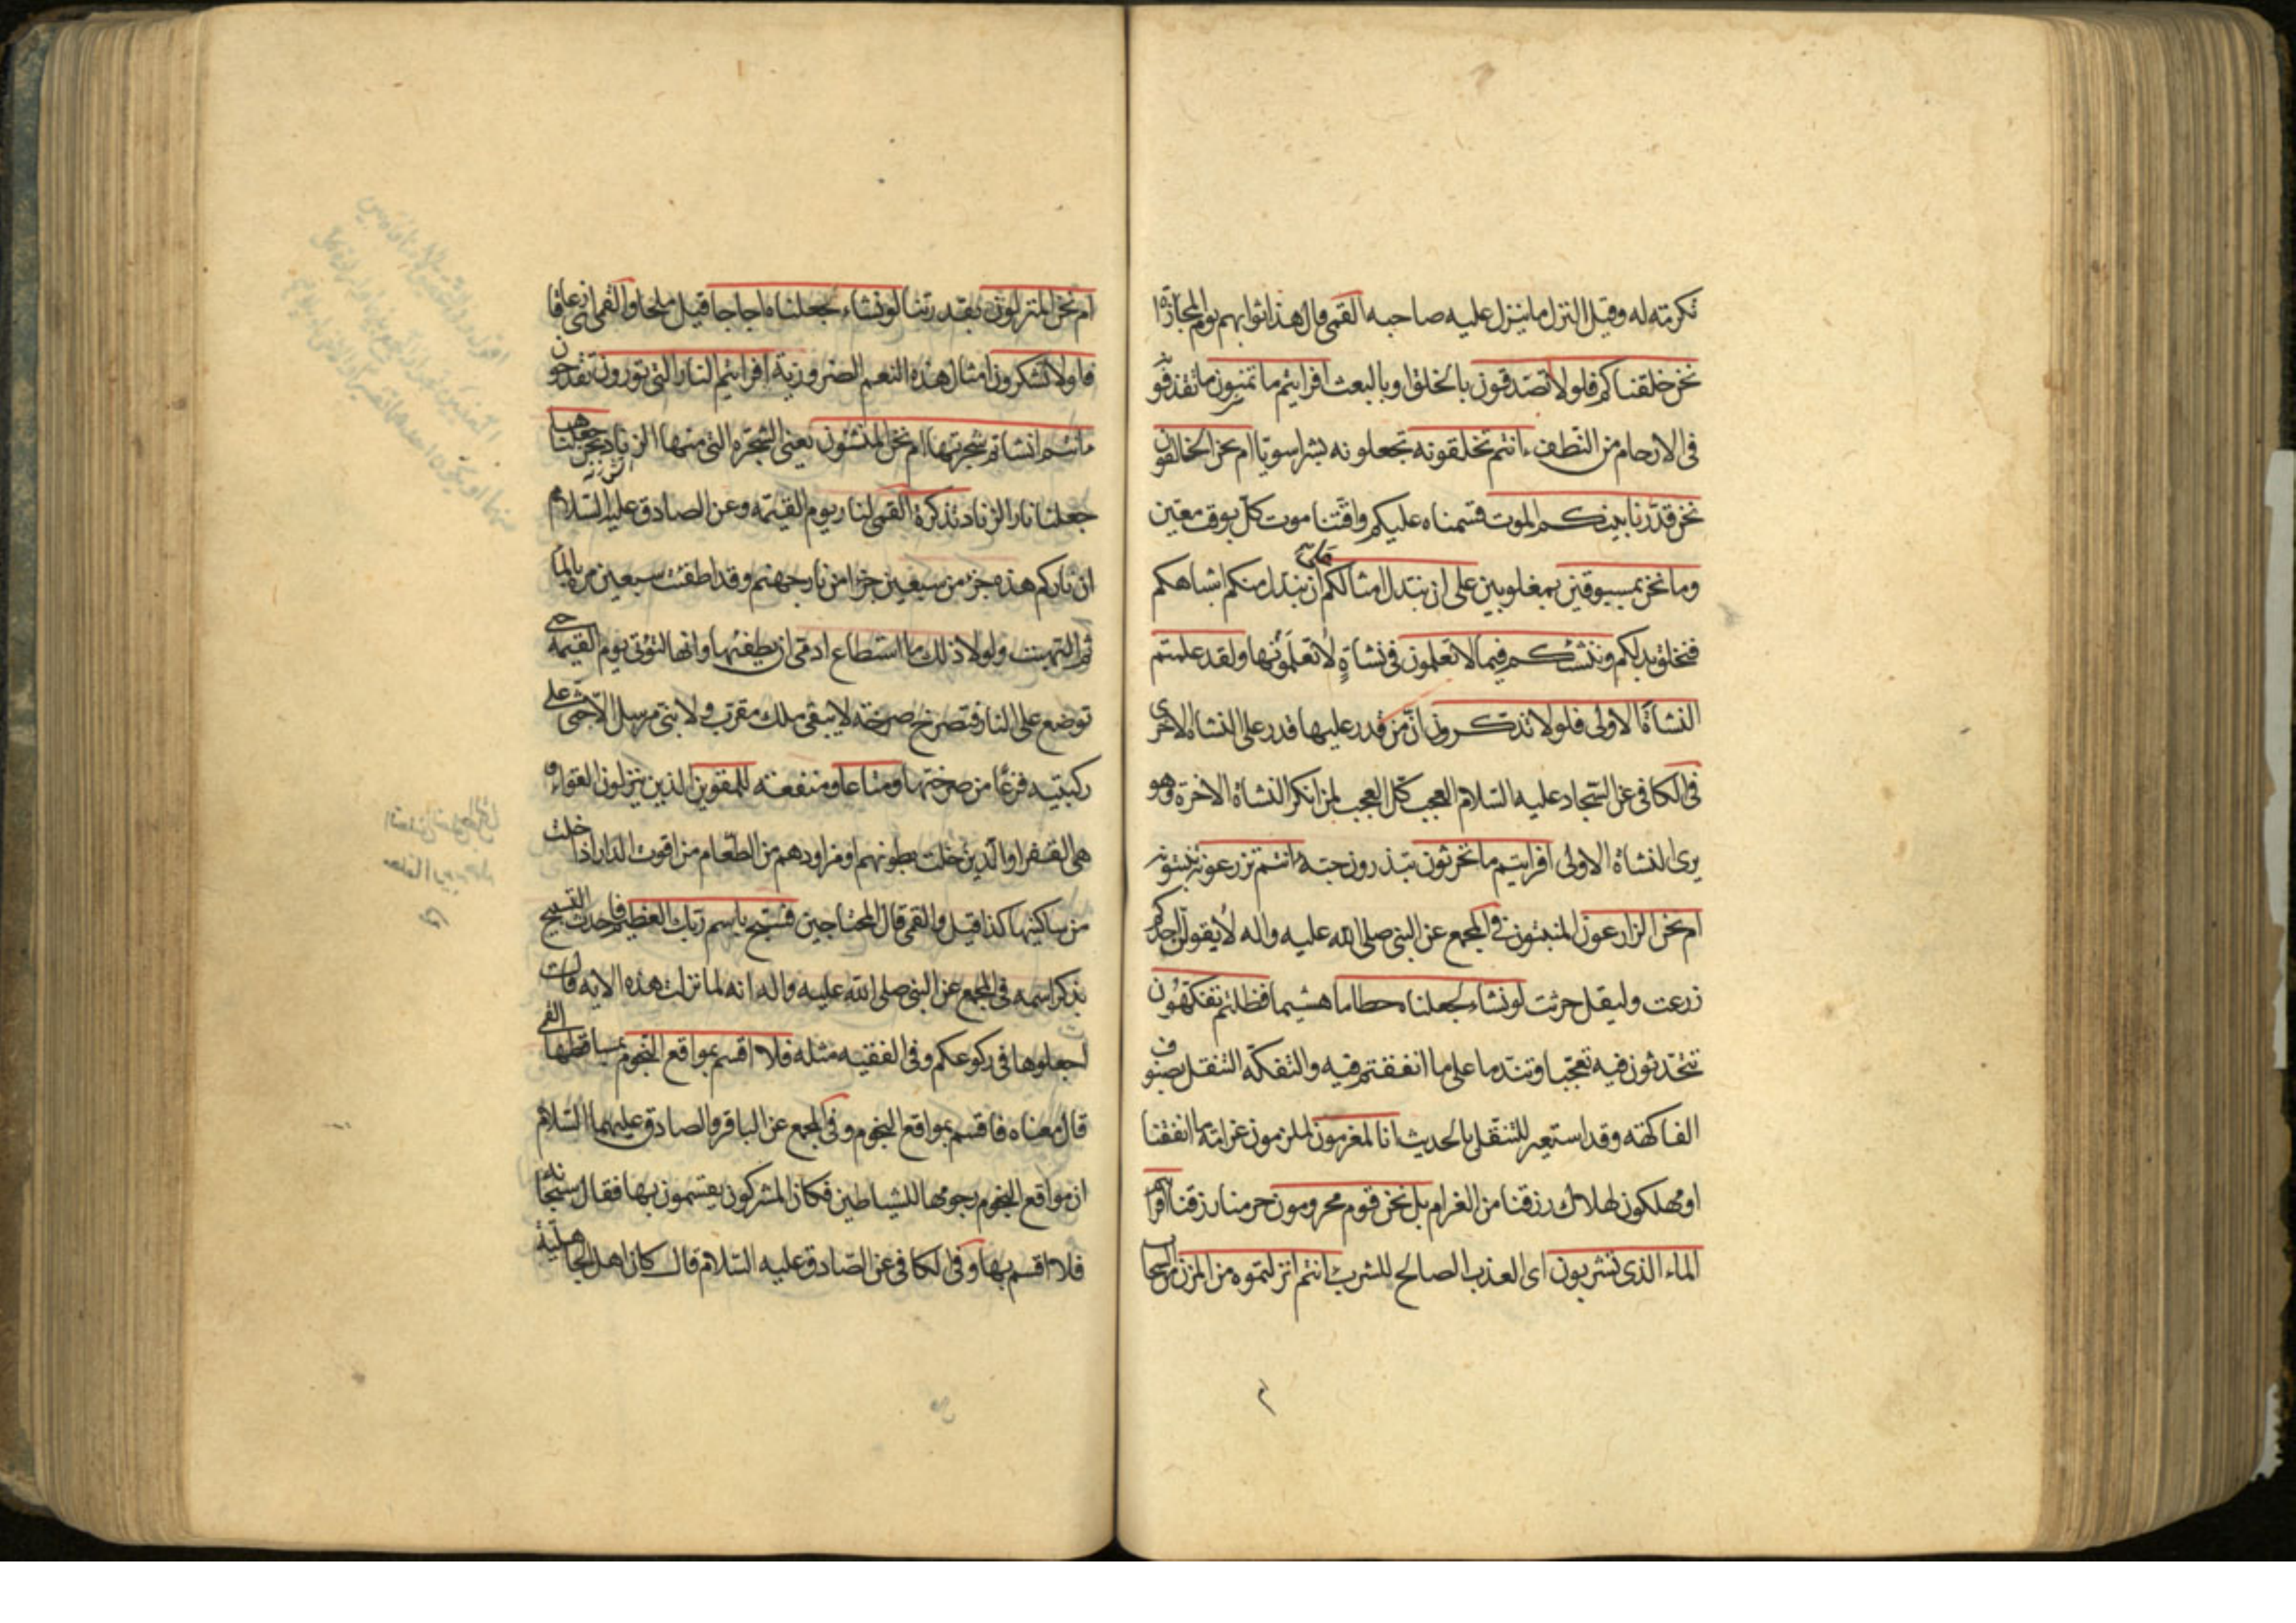 تكرمته له وقيل النزل ما ينزل عليه صاحبه القمى قال هذا ثوابهم يوم المجازاة
نحن خلقناكم فلولا تصدقون بالخلق او بالبعث افرايتم ما تمنون ما تقذفون
فى الارحام من النطف ءانتم تخلقونه تجعلونه بشرا سويا ام نحن الخالقون
نحن قدرنا بينكم الموت قسمناه عليكم واقتنا موت كل بوقت معين
وما نحن بمسبوقين بمغلوبين على ان نبدل امثالكم ان نبدل منكم اشباهكم
فنخلق بدلكم وننشئكم فيما لا تعلمون فى نشاة لا تعلمونها ولقد علمتم
النشاة الاولى فلولا تذكرون ان من قدر عليها قدر على النشاه الاخرى
فى الكافى عن السجاد عليه السلام العجب كل العجب لمن انكر النشاة الاخرة وهو
يرى النشاة الاولى افرايتم ما تحرثون تبذرون حبه ءانتم تزرعونه تنبتونه
ام نحن الزارعون المنبتون فى المجمع عن النبى صلى الله عليه واله لا يقولن احدكم
زرعت وليقل حرثت لو نشاء لجعلناه حطاما هشيما فظلتم تفكهون
تتحدثون فيه تعجبا وتندما على ما انفقتم فيه والتفكه التنقل بصنوف
الفاكهة وقد استعير للتنقل بالحديث انا لمغرمون لملزمون غرامة ما انفقنا
او مهلكون لهلاك رزقنا من الغرام بل نحن قوم محرومون حرمنا رزقنا افرايتم
الماء الذى تشربون اى العذب الصالح للشرب ءانتم انزلتموه من المزن من السحاب
ام نحن المنزلون بقدرتنا لو نشاء جعلناه اجاجا قيل ملحا والقمى اى زعاقا
فلولا تشكرون امثال هذه النعم الضرورية افرايتم النار التى تورون تقدحون
ءانتم انشاتم شجرتها ام نحن المنشئون يعنى الشجرة التى منها الزناد نحن جعلناها
جعلنا نار الزناد تذكرة القمى لنار يوم القيمه وعن الصادق عليه السلام
ان ناركم هذه جزء من سبعين جزءا من نار جهنم وقد اطفئت سبعين مرة بالماء
ثم التهبت ولولا ذلك ما استطاع ادمى ان يطفئها وانها لتؤتى يوم القيمة حتى
توضع على النار فتصرخ صرخة لا يبقى ملك مقرب ولا نبى مرسل الا جثى على
ركبتيه فزعا من صرختها ومتاعا ومنفعة للمقوين الذين ينزلون القواء و
هى القفر او الذين خلت بطونهم او مزاودهم من الطعام من اقوت الدار اذا خلت
من ساكنيها كذا قيل والقمى قال المحتاجين فسبح باسم ربك العظيم فاحدث التسبيح
بذكر اسمه فى المجمع عن النبى صلى الله عليه واله انه لما نزلت هذه الايه قال
اجعلوها فى ركوعكم وفى الفقيه مثله فلا اقسم بمواقع النجوم بمساقطها القمى
قال معناه فاقسم بمواقع النجوم وفى المجمع عن الباقر والصادق عليهما السلام
ان مواقع النجوم رجومها للشياطين فكان المشركون يقسمون بها فقال سبحانه
فلا اقسم بها وفى الكافى عن الصادق عليه السلام قال كان اهل الجاهلية